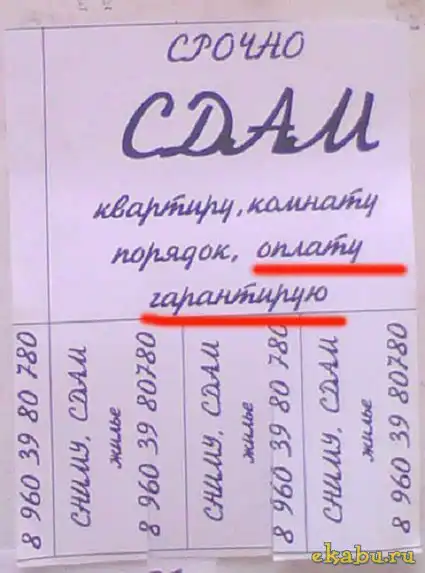 СРОЧНО
СДАМ
квартиру, комнату
порядок, оплату
гарантирую
8 960 39 80 780
СНИМУ, СДАМ
жилье
8 960 39 80780
СНИМУ, СДАМ
жилье
8 960 39 80 780
СНИМУ, СДАМ
жилье
8 960 39 80780
ekabu.ru